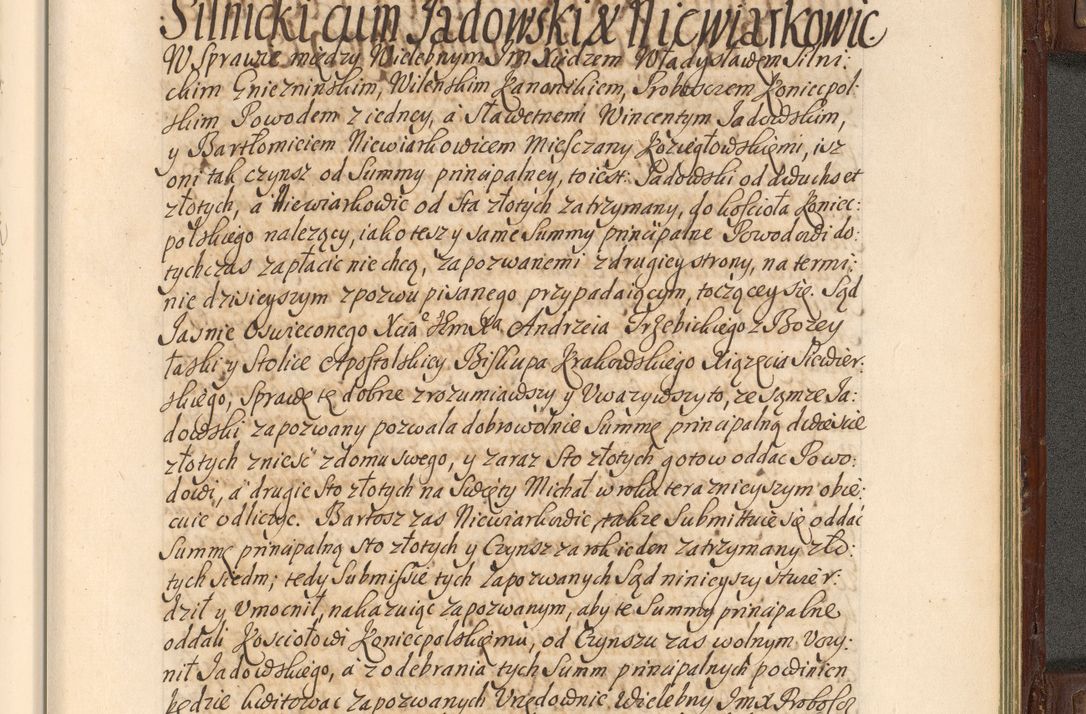 Silnicki cum Jadowski & Niewiarkowic.
W Sprawie między Wielebnym Jm Xiędzem Władysławem Silni:
ckim Gnieznińskim, Wileńskim Kanonikiem, Proboszczem Koniecpol:
skim Powodem z iedney, a Sławetnemi Wincentym Jadowskim,
y Bartłomieiem Niewiarkowicem Miesczany Koziegłowskiemi, isz
oni tak czynsz od Summy principalney, to iest: Jadowski od dwuchset
złotych, a Niewiarkowic od sta złotych zatrzymany, do kościoła Koniec:
polskiego nalezący, iako tesz y same Summy principalne Powodowi do:
tychczas zapłacic nie chcą, zapozwanemi z drugiey strony, na termi:
nie dzisieyszym z pozwu pisanego przypadaiącym, toczącey się. Sąd
Jasnie Oswieconego Xcia Jm Xa Andrzeia Trzebickiego z Bozey
łaski y Stolice Apostolskiey Biskupa Krakowskiego Xiązęcia Siewier:
skiego, Sprawę tę dobrze zrozumiawszy y Uwazywszy to, ze Sąmze Ja:
dowski zapozwany pozwala dobrowolnie Summę principalną dwiescie
złotych znieść z domu swego, y zaraz sto złotych gotow oddac Powo:
dowi, a drugie sto złotych na Swięty Michał w roku teraznieyszym obie:
cuie odliczyc. Bartosz zas Niewiarkowic, takze Submittuie się oddać
Summę principalną sto złotych y Czynsz za rok ieden zatrzymany zło:
tych siedm; tedy Submissie tych zapozwanych Sąd ninieyszy stwier:
dził y Umocnił, nakazuiąc zapozwanym, aby te Summy principalne
oddali Kosciołowi Koniecpolskiemu, od Czynszu zas wolnym Uczy:
nił Jadowskiego, a z odebrania tych Summ principalnych powinien
będzie kwitowac zapozwanych Urzędownie Wielebny Jmx Probosc